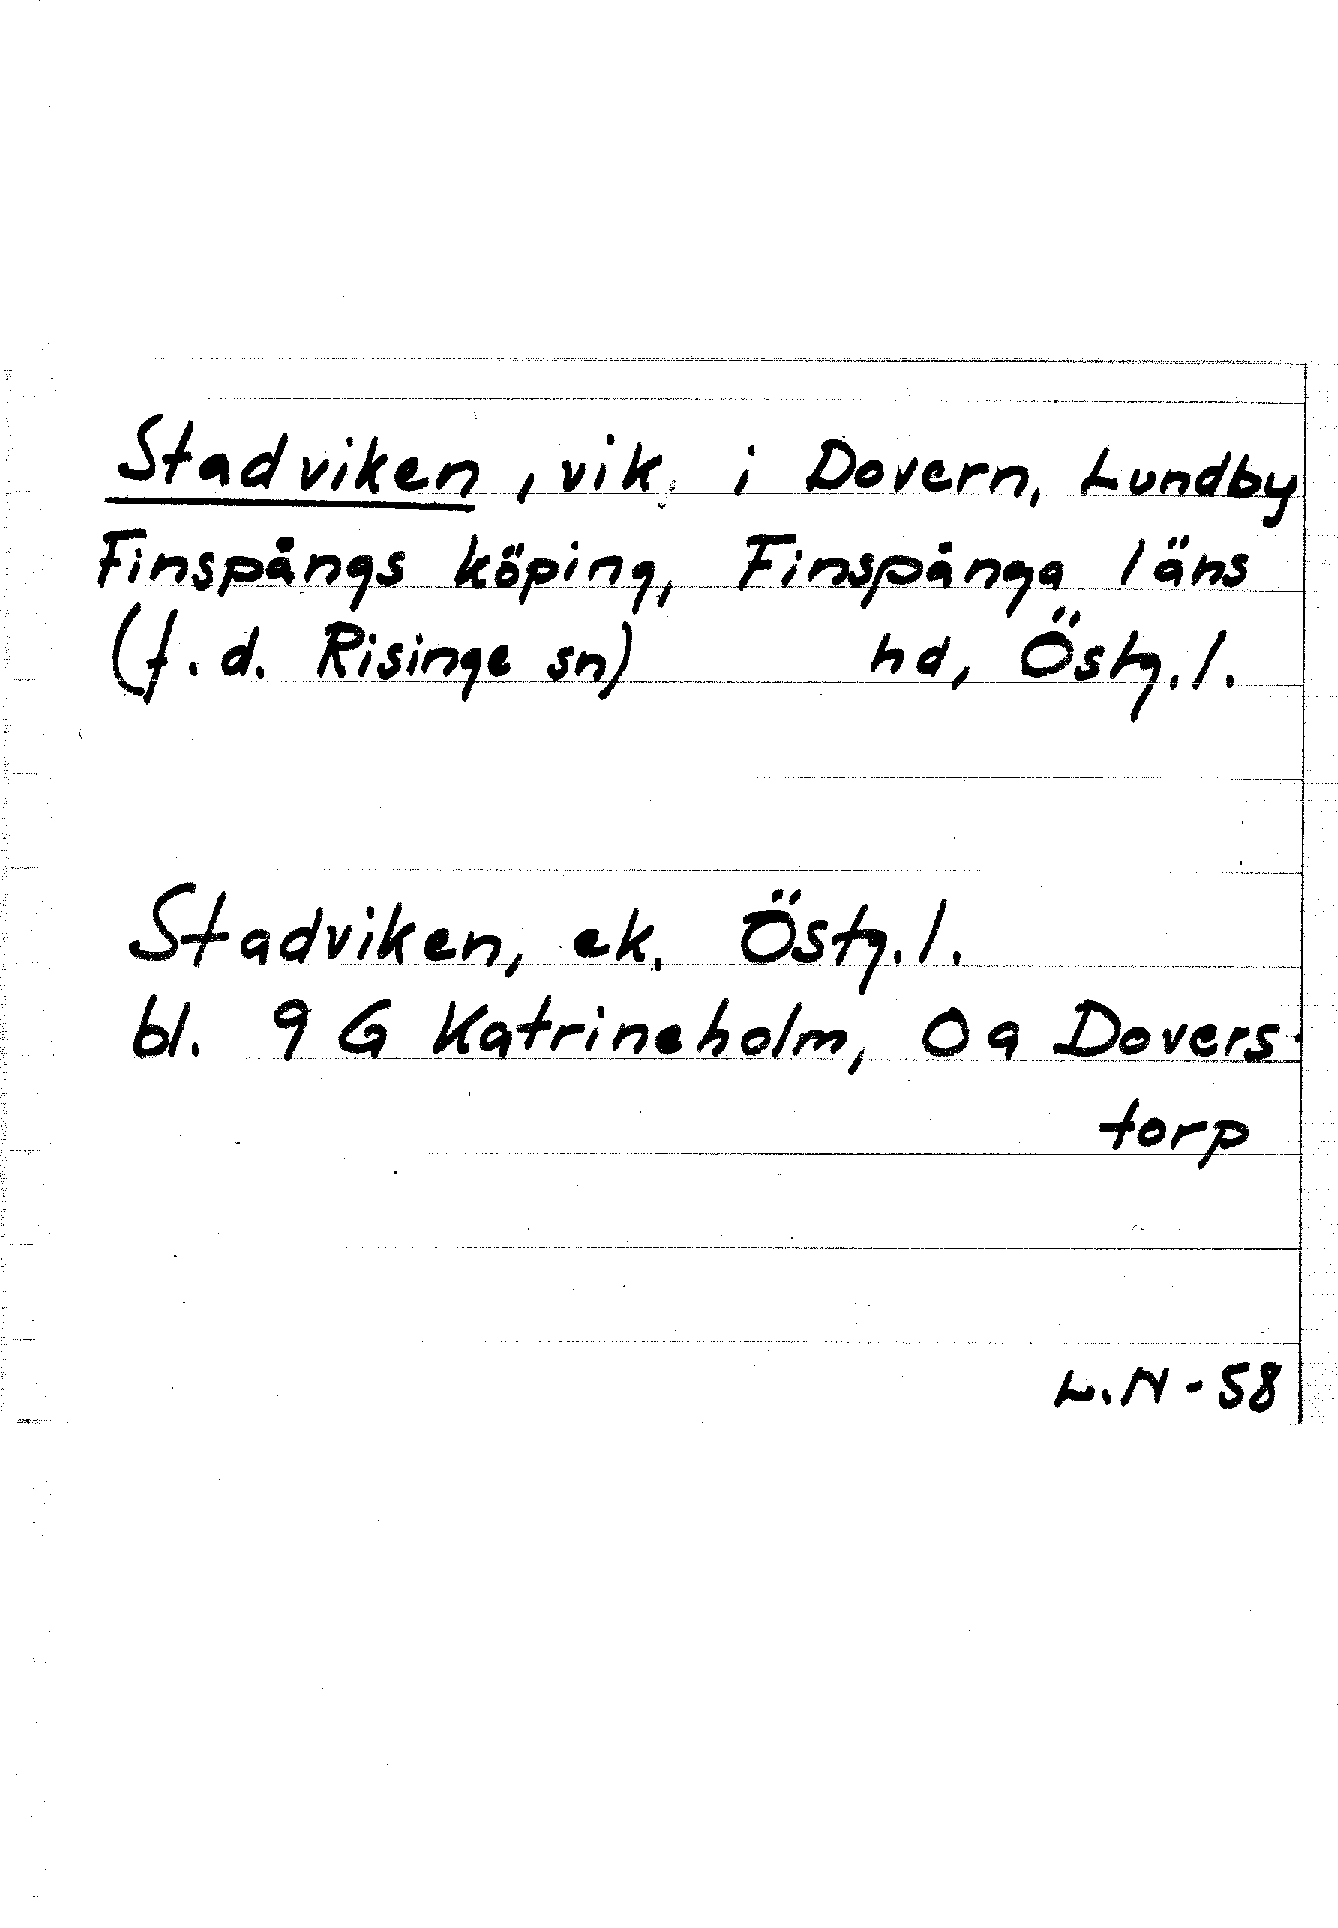 Stadviken, vik. i Dovern, Lundby
Finspångs köping, Finspånga läns
(f.d. Risinge sn) hd, Östg.l.
Stadviken, ek. Östg.l.
bl. 9 G Katrineholm, 0a Dovers-
torp
L.N - 58